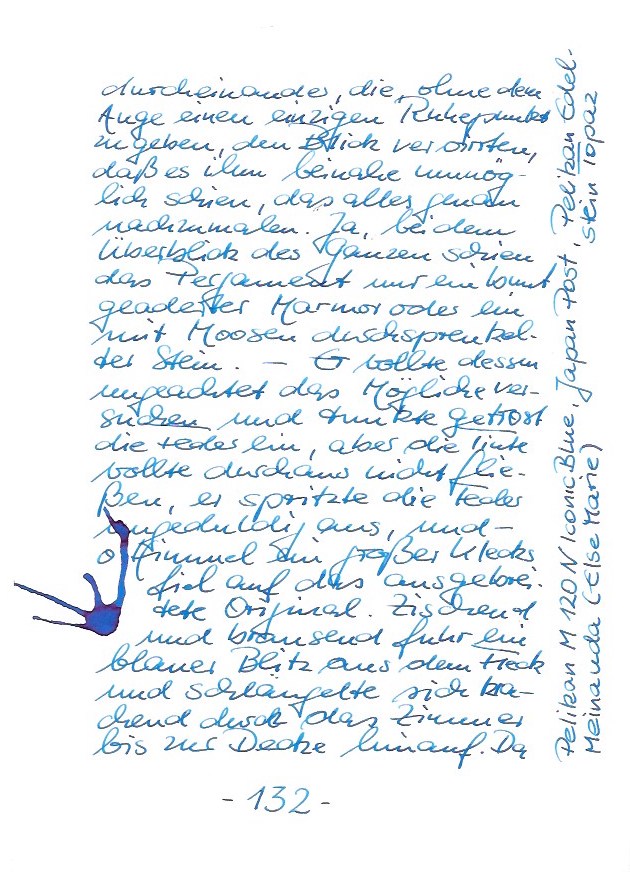 durcheinander, die, ohne dem
Auge einen einzigen Ruhepunkt
zu geben, den Blick verwirrten,
daß es ihm beinahe unmög-
lich schien, das alles genau
nachzumalen. Ja, bei dem
Überblick des Ganzen schien
das Pergament nur ein bunt
geaderter Marmor oder ein
mit Moosen durchsprenkel-
ter Stein. — Er wollte dessen
ungeachtet das Mögliche ver-
suchen und tunkte getrost
die Feder ein, aber die Tinte
wollte durchaus nicht flie-
ßen, er spritzte die Feder
ungeduldig aus, und –
o Himmel ein großer Klecks
fiel auf das ausgebrei-
tete Original. Zischend
und brausend fuhr ein
blauer Blitz aus dem Fleck
und schlängelte sich kra-
chend durch das Zimmer
bis zur Decke hinauf. Da
- 132 -
Pelikan M 120 N Iconic Blue, Japan Post, Pelikan Edel-
stein Topaz
Meinauda (Else Marie)